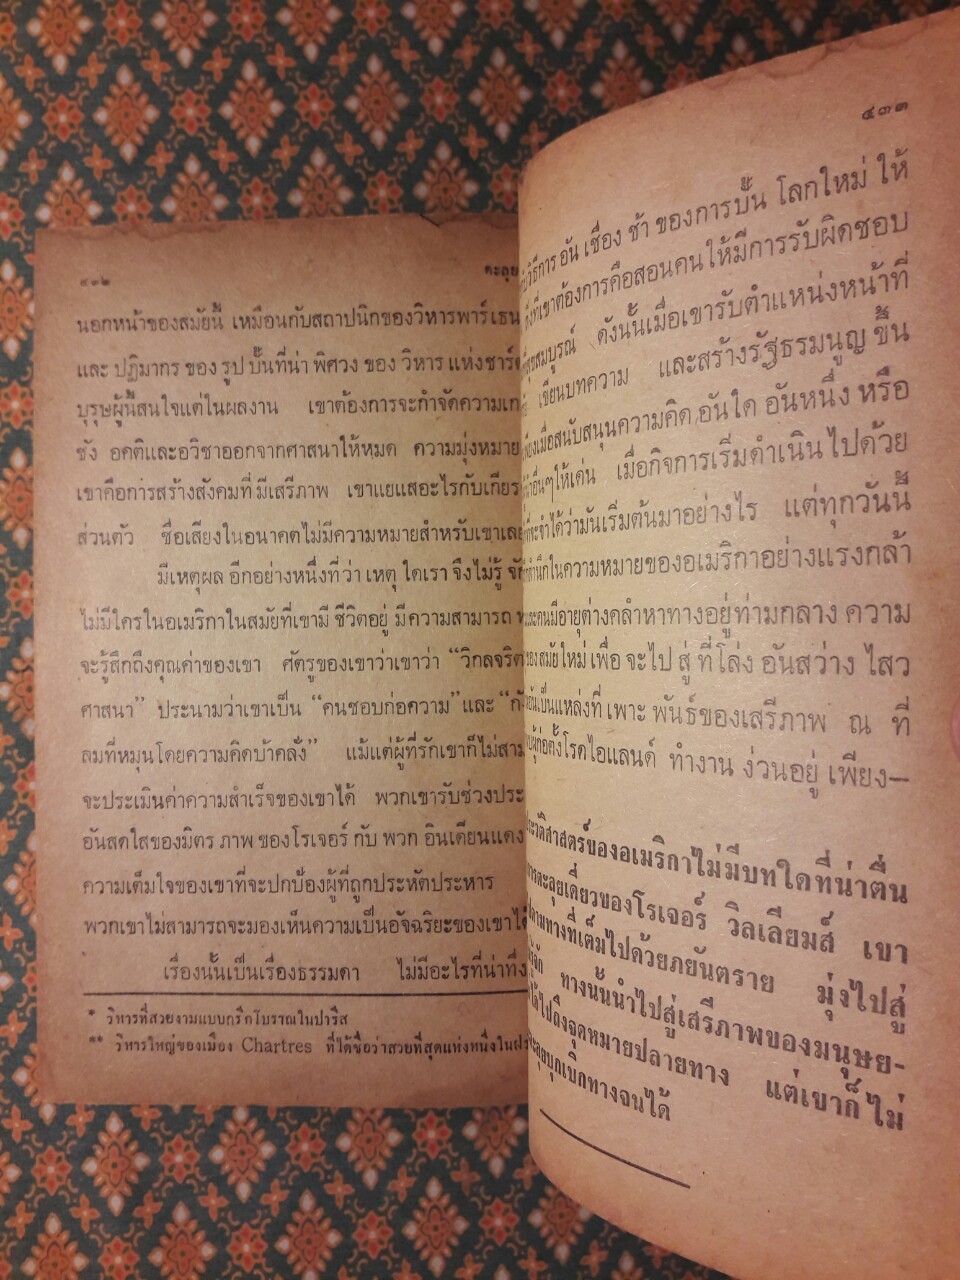 ๔๓๒
ตะลุย
นอกหน้าของสมัยนี้ เหมือนกับสถาปนิกของวิหารพาร์เธน
และ ปฏิมากร ของ รูป ปั้นที่น่า พิศวง ของ วิหาร แห่งชาร์ต
บุรุษผู้นี้สนใจแต่ในผลงาน เขาต้องการจะกำจัดความเก
ชัง อคติและอวิชาออกจากศาสนาให้หมด ความมุ่งหมาย
เขาคือการสร้างสังคมที่มีเสรีภาพ เขาแยแสอะไรกับเกียร
ส่วนตัว ชื่อเสียงในอนาคตไม่มีความหมายสำหรับเขาเลย
มีเหตุผล อีกอย่างหนึ่งที่ว่า เหตุ ใดเรา จึงไม่รู้ จัก
ไม่มีใครในอเมริกาในสมัยที่เขามี ชีวิตอยู่ มีความสามารถ
จะรู้สึกถึงคุณค่าของเขา ศัตรูของเขาว่าเขาว่า “วิกลจริต
ศาสนา” ประนามว่าเขาเป็น “คนชอบก่อความ” และ “กั
ลมที่หมุนโดยความคิดบ้าคลั่ง” แม้แต่ผู้ที่รักเขาก็ไม่สาม
จะประเมินค่าความสำเร็จของเขาได้ พวกเขารับช่วงประ
อันสดใสของมิตร ภาพ ของโรเจอร์ กับ พวก อินเดียนแดง
ความเต็มใจของเขาที่จะปกป้องผู้ที่ถูกประหัตประหาร
พวกเขาไม่สามารถจะมองเห็นความเป็นอัจฉริยะของเขาได้
เรื่องนั้นเป็นเรื่องธรรมดา ไม่มีอะไรที่น่าทึ่ง
* วิหารที่สวยงามแบบกรีกโบราณในปารีส
** วิหารใหญ่ของเมือง Chartres ที่ได้ชื่อว่าสวยที่สุดแห่งหนึ่งในฝรั
๔๓๓
วิธีการ อัน เชื่อง ช้า ของการปั้น โลกใหม่ ให้
สิ่งที่เขาต้องการคือสอนคนให้มีการรับผิดชอบ
สมบูรณ์ ดังนั้นเมื่อเขารับตำแหน่งหน้าที่
เขียนบทความ และสร้างรัฐธรรมนูญ ขึ้น
เพียงเมื่อสนับสนุนความคิด อันใด อันหนึ่ง หรือ
อื่นๆให้เด่น เมื่อกิจการเริ่มดำเนินไปด้วย
จะจำได้ว่ามันเริ่มต้นมาอย่างไร แต่ทุกวันนี้
สำนึกในความหมายของอเมริกาอย่างแรงกล้า
และคนมีอายุต่างคลำหาทางอยู่ท่ามกลาง ความ
ของ สมัยใหม่ เพื่อ จะไป สู่ ที่โล่ง อันสว่าง ไสว
อันเป็นแหล่งที่ เพาะ พันธ์ของเสรีภาพ ณ ที่
ผู้ก่อตั้งโรดไอแลนด์ ทำงาน ง่วนอยู่ เพียง—
ประวัติศาสตร์ของอเมริกาไม่มีบทใดที่น่าตื่น
การตะลุยเดี่ยวของโรเจอร์ วิลเลียมส์ เขา
ตามทางที่เต็มไปด้วยภยันตราย มุ่งไปสู่
รู้จัก ทางนั้นนำไปสู่เสรีภาพของมนุษย-
ได้ไปถึงจุดหมายปลายทาง แต่เขาก็ไม่
ตะลุยบุกเบิกทางจนได้